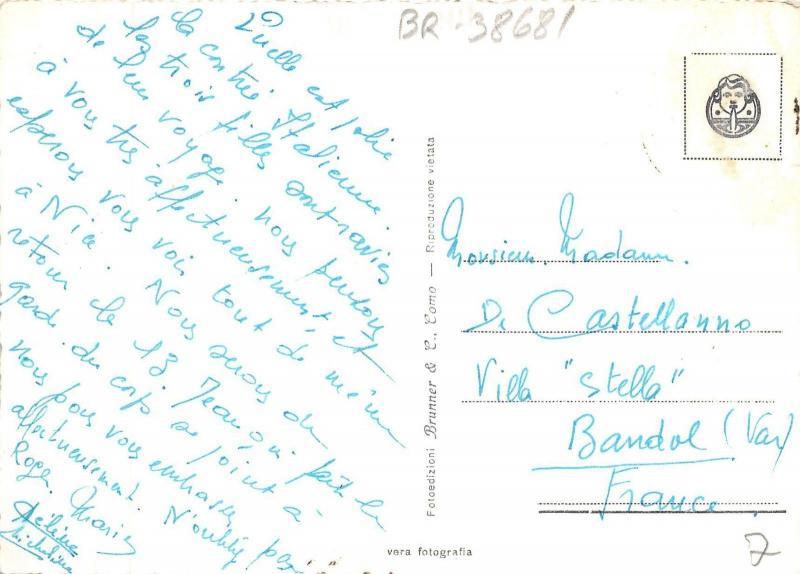 BR-38681
Quelle est jolie
la contrée Italienne.
les trois filles sont ravies
de leur voyage. nous pensons
à vous très affectueusement, et
espérons vous voir tout de même
à Nice. Nous serons de
retour le 13. Jean qui fait le
garde du corps se joint à
nous pour vous embrasser
affectueusement. N'oubliez pas
Roger Marie
Hélène
Micheline
Fotoedizioni Brunner & C., Como — Riproduzione vietata
Monsieur. Madame.
De Castellanno
Villa "Stella"
Bandol (Var)
France
vera fotografia
7